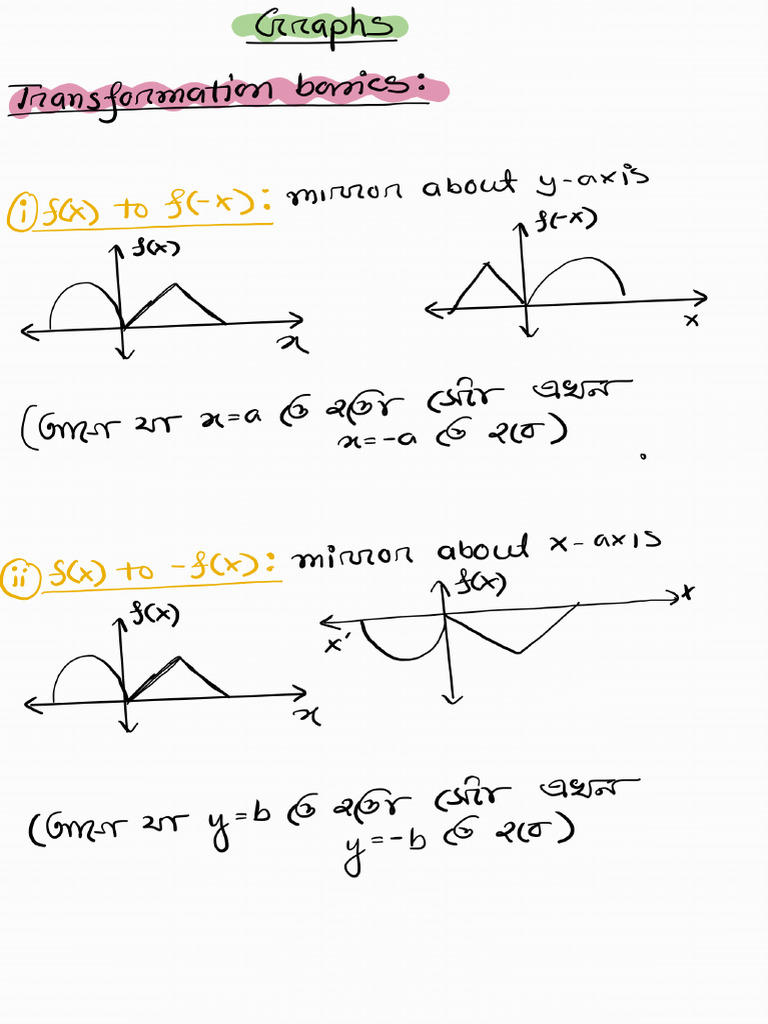 Graphs
Transformation basics:
i f(x) to f(-x): mirror about y-axis
f(x)
f(-x)
x
x
(আগে যা x=a তে হতো সেটা এখন
x=-a তে হবে)
ii f(x) to -f(x): mirror about x-axis
f(x)
f(x)
x
x'
x
(আগে যা y=b তে হতো সেটা এখন
y=-b তে হবে)